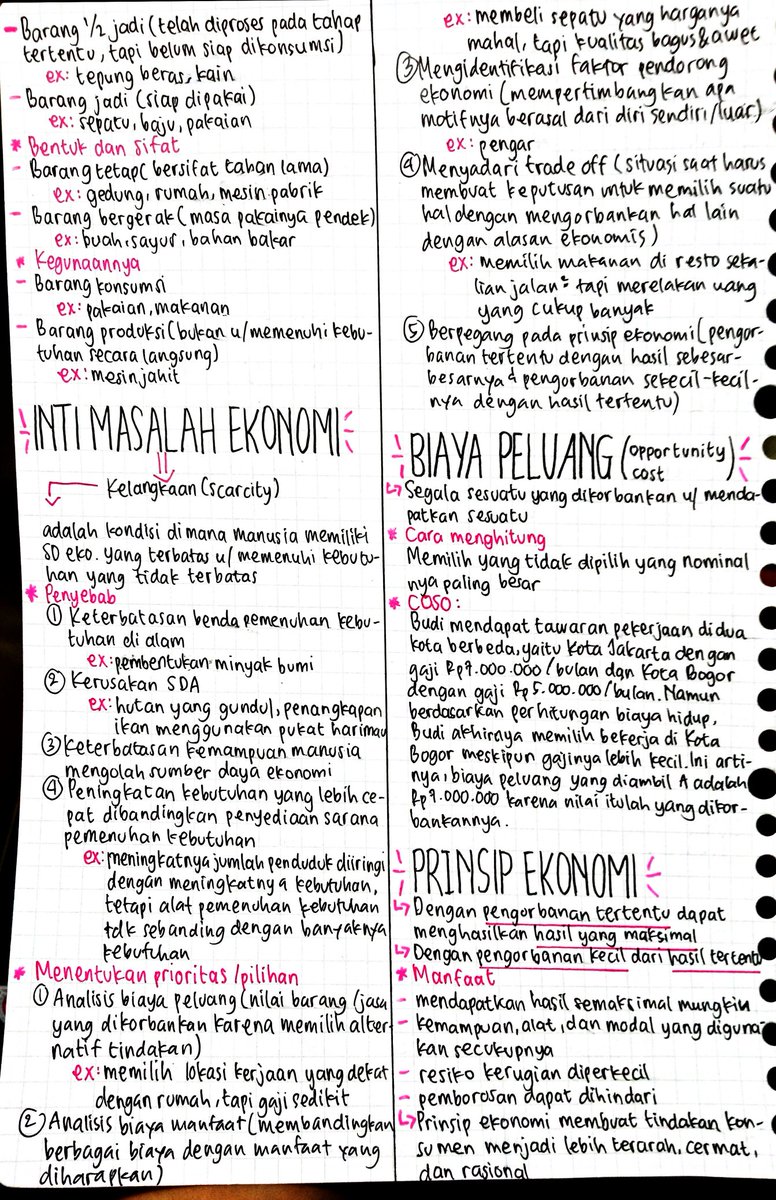 - Barang 1/2 jadi (telah diproses pada tahap
tertentu, tapi belum siap dikonsumsi)
ex: tepung beras, kain
- Barang jadi (siap dipakai)
ex: sepatu, baju, pakaian
* Bentuk dan sifat
- Barang tetap (bersifat tahan lama)
ex: gedung, rumah, mesin pabrik
- Barang bergerak (masa pakainya pendek)
ex: buah, sayur, bahan bakar
* Kegunaannya
- Barang konsumsi
ex: pakaian, makanan
- Barang produksi (bukan u/ memenuhi kebu-
tuhan secara langsung)
ex: mesin jahit
INTI MASALAH EKONOMI
Kelangkaan (scarcity)
adalah kondisi di mana manusia memiliki
SD eko. yang terbatas u/ memenuhi kebutu-
han yang tidak terbatas
* Penyebab
① Keterbatasan benda pemenuhan kebu-
tuhan di alam
ex: pembentukan minyak bumi
② Kerusakan SDA
ex: hutan yang gundul, penangkapan
ikan menggunakan pukat harimau
③ Keterbatasan kemampuan manusia
mengolah sumber daya ekonomi
④ Peningkatan kebutuhan yang lebih ce-
pat dibandingkan penyediaan sarana
pemenuhan kebutuhan
ex: meningkatnya jumlah penduduk diiringi
dengan meningkatnya kebutuhan,
tetapi alat pemenuhan kebutuhan
tdk sebanding dengan banyaknya
kebutuhan
* Menentukan prioritas/pilihan
① Analisis biaya peluang (nilai barang/jasa
yang dikorbankan karena memilih alter-
natif tindakan)
ex: memilih lokasi kerjaan yang dekat
dengan rumah, tapi gaji sedikit
② Analisis biaya manfaat (membandingkan
berbagai biaya dengan manfaat yang
diharapkan)
ex: membeli sepatu yang harganya
mahal, tapi kualitas bagus & awet
③ Mengidentifikasi faktor pendorong
ekonomi (mempertimbangkan apa
motifnya berasal dari diri sendiri/luar)
ex: pengar
④ Menyadari trade off (situasi saat harus
membuat keputusan untuk memilih suatu
hal dengan mengorbankan hal lain
dengan alasan ekonomis)
ex: memilih makanan di resto seka-
lian jalan² tapi merelakan uang
yang cukup banyak
⑤ Berpegang pada prinsip ekonomi (pengor-
banan tertentu dengan hasil sebesar-
besarnya & pengorbanan sekecil-kecil-
nya dengan hasil tertentu)
BIAYA PELUANG (opportunity
cost)
↳ Segala sesuatu yang dikorbankan u/ menda-
patkan sesuatu
* Cara menghitung
Memilih yang tidak dipilih yang nominal
nya paling besar
* COSO:
Budi mendapat tawaran pekerjaan di dua
kota berbeda, yaitu Kota Jakarta dengan
gaji Rp7.000.000/bulan dan Kota Bogor
dengan gaji Rp5.000.000/bulan. Namun
berdasarkan perhitungan biaya hidup,
Budi akhirnya memilih bekerja di Kota
Bogor meskipun gajinya lebih kecil. Ini arti-
nya, biaya peluang yang diambil A adalah
Rp7.000.000 karena nilai itulah yang dikor-
bankannya.
PRINSIP EKONOMI
↳ Dengan pengorbanan tertentu dapat
menghasilkan hasil yang maksimal
↳ Dengan pengorbanan kecil dari hasil tertentu
* Manfaat
- mendapatkan hasil semaksimal mungkin
- kemampuan, alat, dan modal yang diguna-
kan secukupnya
- resiko kerugian diperkecil
- pemborosan dapat dihindari
↳ Prinsip ekonomi membuat tindakan kon-
sumen menjadi lebih terarah, cermat,
dan rasional